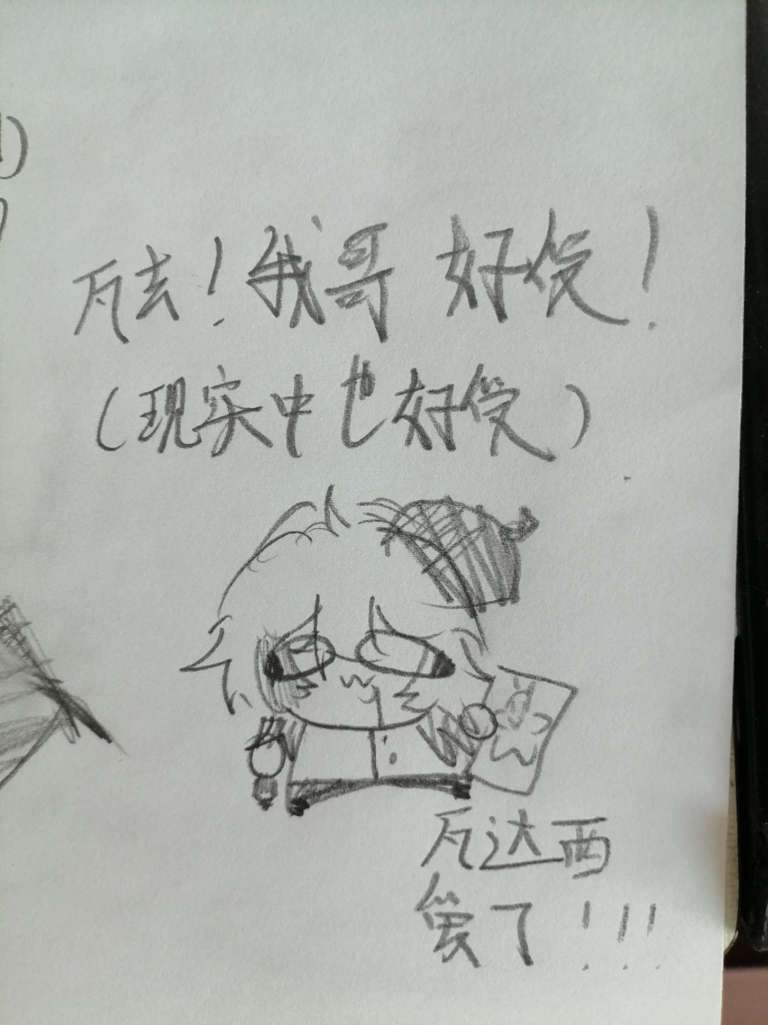 瓦去！我哥 好受！
（现实中也好受）
瓦达西
爱了！！！